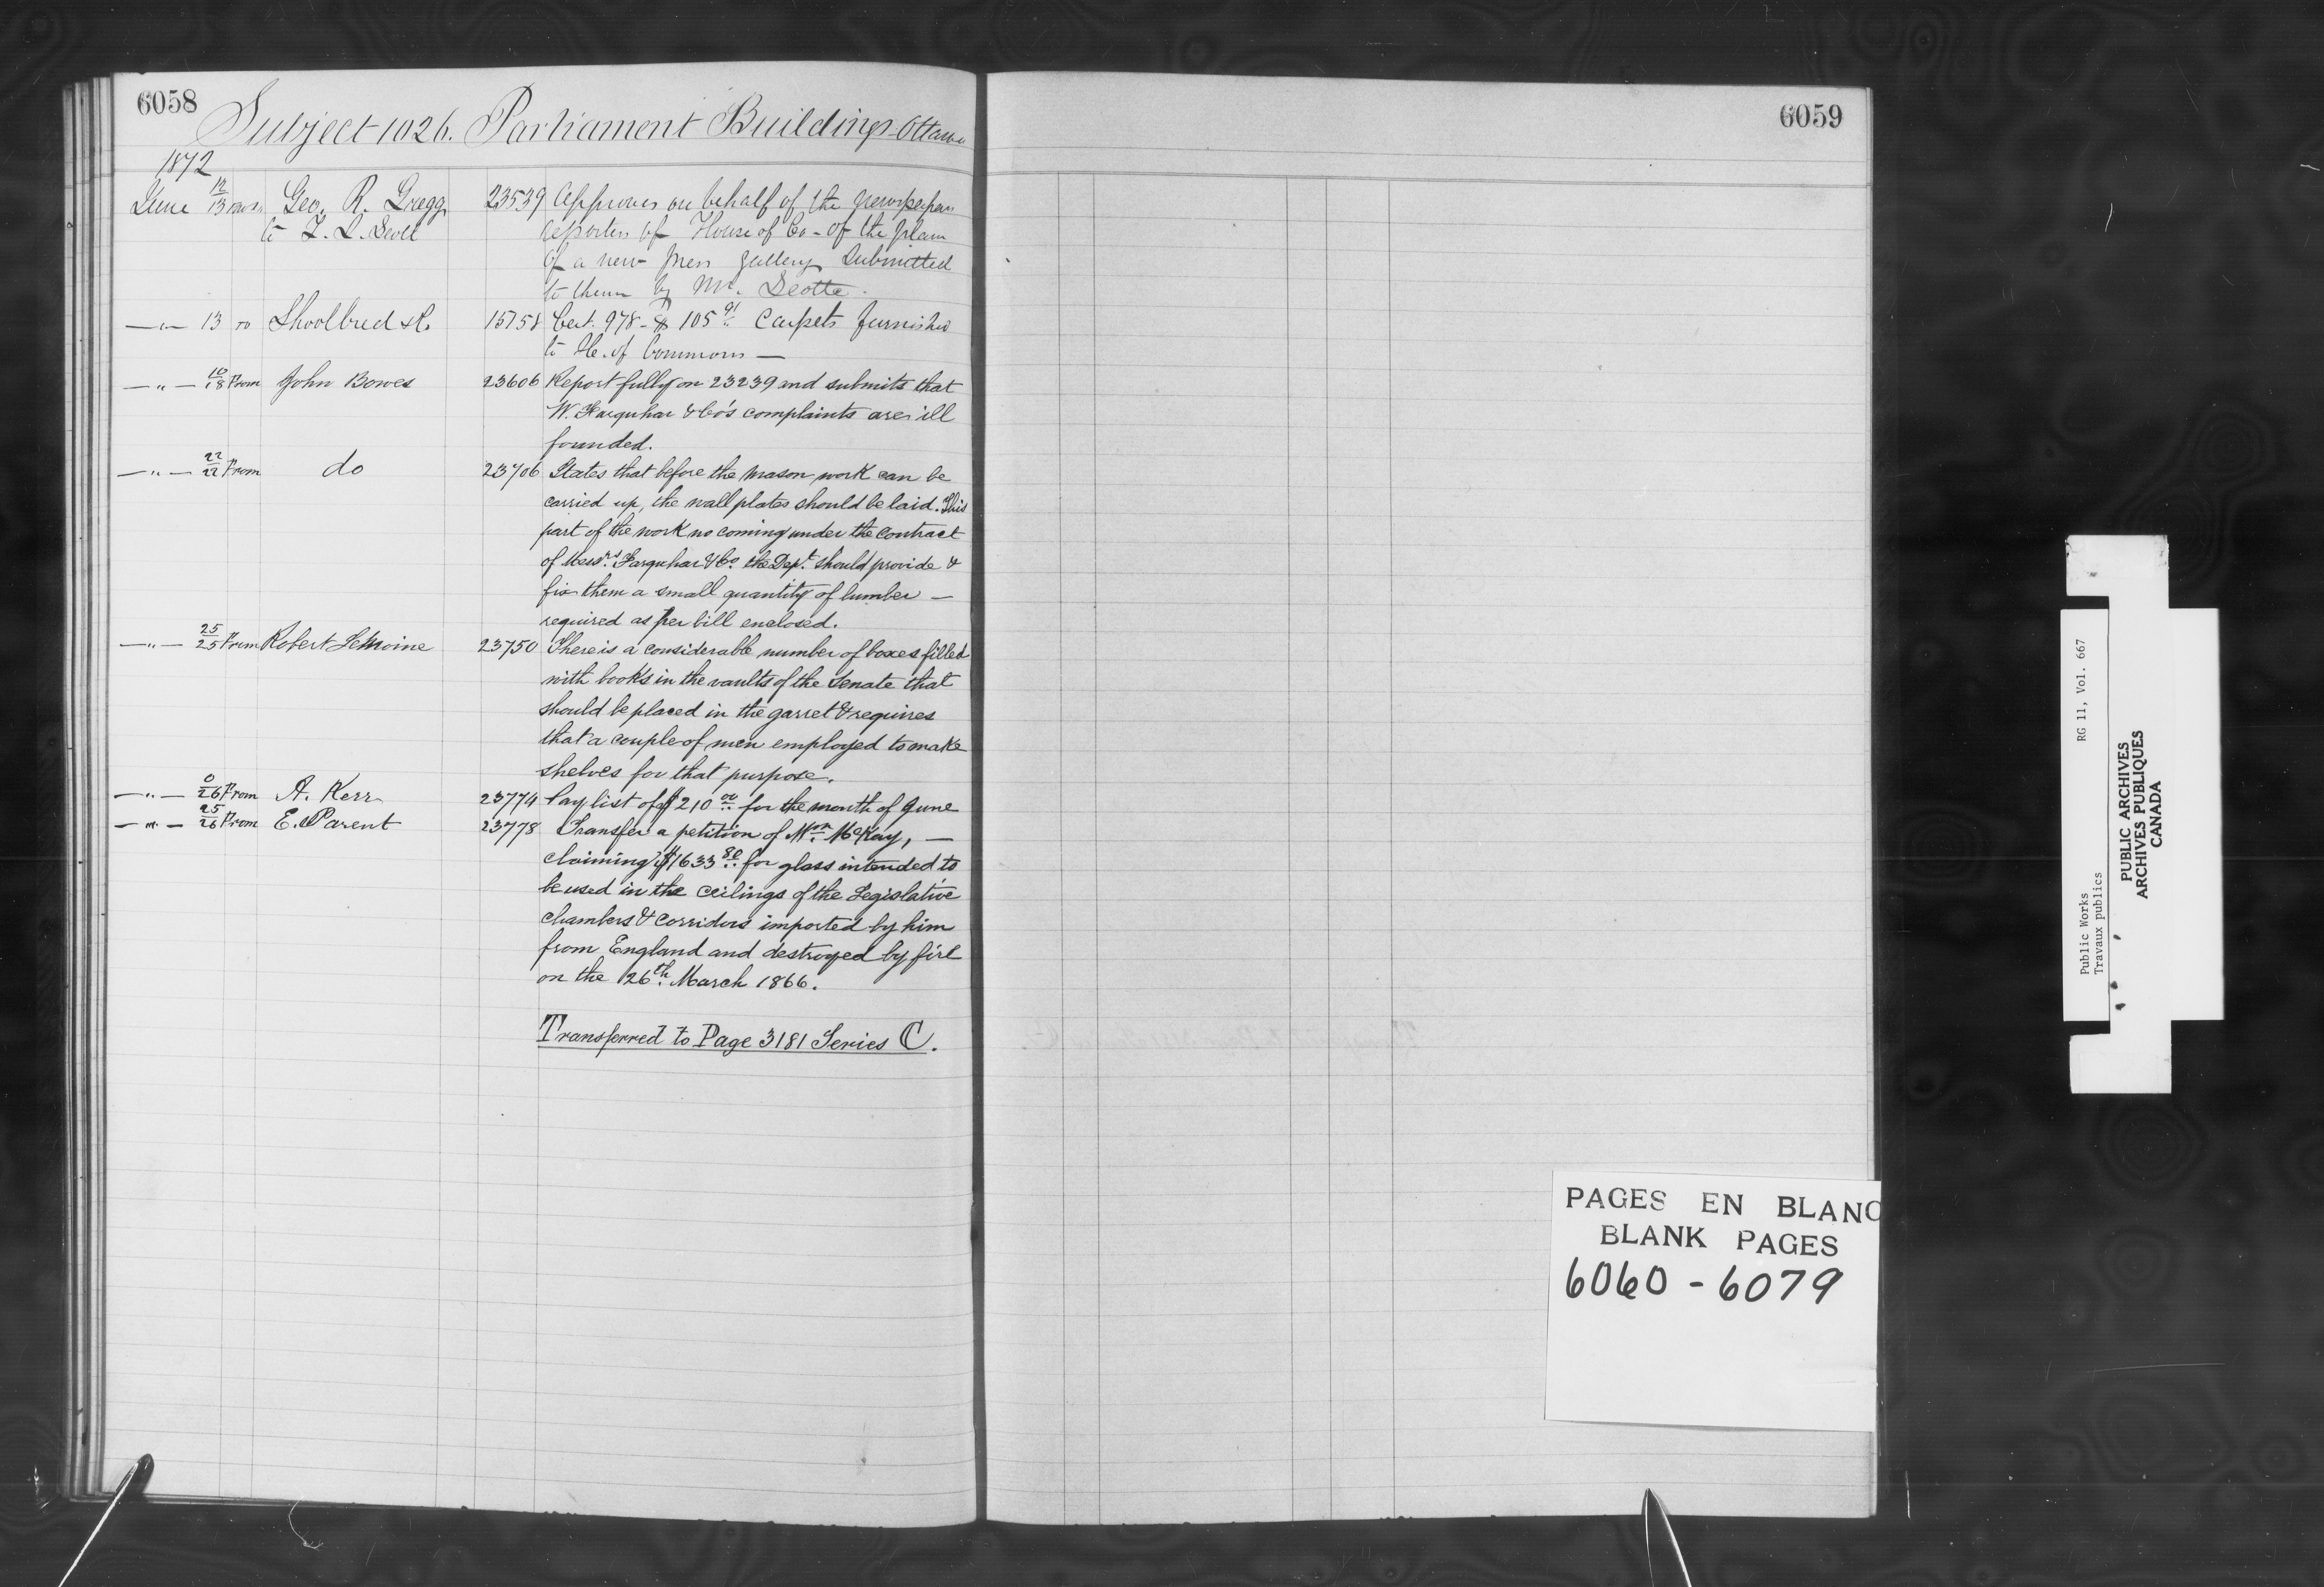 6058
Subject 1026. Parliament Buildings Ottawa
1872
June 12/13 From Geo. R. Gregg 23539 Approves on behalf of the newspaper
to T. S. Scott reporters of House of Co- of the plan
of a new press gallery submitted
to them by Mr. Scotte.
—"— 13 To Shoolbred & Co 15758 Cert. 978 - $105 91 Carpets furnished
to Ho. of Commons —
—"— 10/18 From John Bowes 23606 Report fully on 23239 and submits that
W. Farquhar & Co's complaints are ill
founded.
—"— 22/22 From do 23706 States that before the mason work can be
carried up, the wall plates should be laid. This
part of the work no coming under the contract
of Messrs. Farquhar & Co. the Dept. should provide &
fix them a small quantity of lumber —
required as per bill enclosed.
—"— 25/25 From Robert LeMoine 23750 There is a considerable number of boxes filled
with books in the vaults of the Senate that
should be placed in the garret & requires
that a couple of men employed to make
shelves for that purpose.
—"— 0/26 From A. Kerr 23774 Pay list of $210 00 for the month of June
—"— 25/26 From E. Parent 23778 Transfer a petition of Wm McKay, —
claiming $1633 80 for glass intended to
be used in the ceilings of the Legislative
chambers & corridors imported by him
from England and destroyed by fire
on the 26th. March 1866.
Transferred to Page 3181 Series C.
6059
PAGES EN BLANC
BLANK PAGES
6060 - 6079
Public Works RG 11, Vol. 667
Travaux publics
PUBLIC ARCHIVES
ARCHIVES PUBLIQUES
CANADA